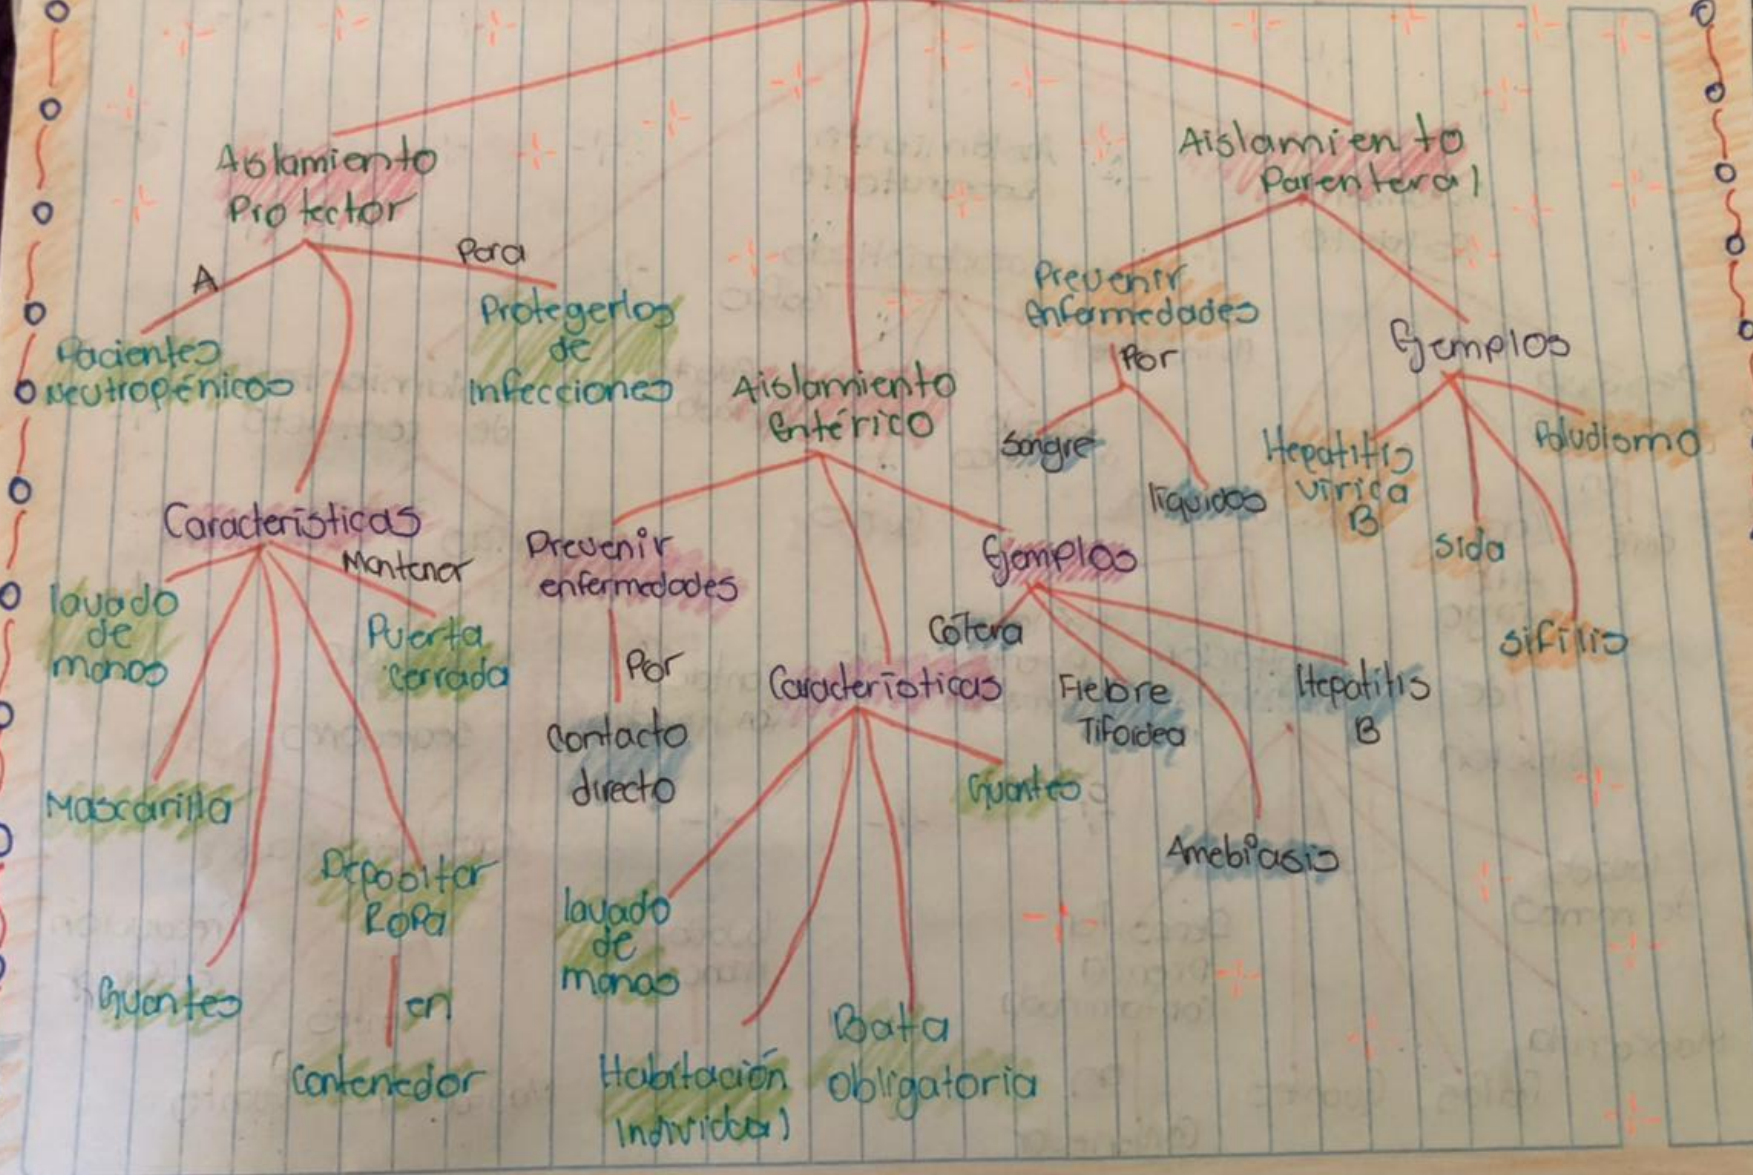 Aislamiento
Protector
A
Para
Pacientes
Neutropénicos
Protegerlos
de
infecciones
Características
lavado
de
manos
Mascarilla
Guantes
Depositar
Ropa
en
Contenedor
Mantener
Puerta
cerrada
Aislamiento
Entérico
Prevenir
enfermedades
Por
Contacto
directo
Características
lavado
de
manos
Habitación
Individual
Bata
obligatoria
Guantes
Ejemplos
Cólera
Fiebre
Tifoidea
Amebiasis
Hepatitis
B
Aislamiento
Parenteral
Prevenir
enfermedades
Por
Sangre
líquidos
Ejemplos
Hepatitis
vírica
B
Sida
Sífilis
Paludismo